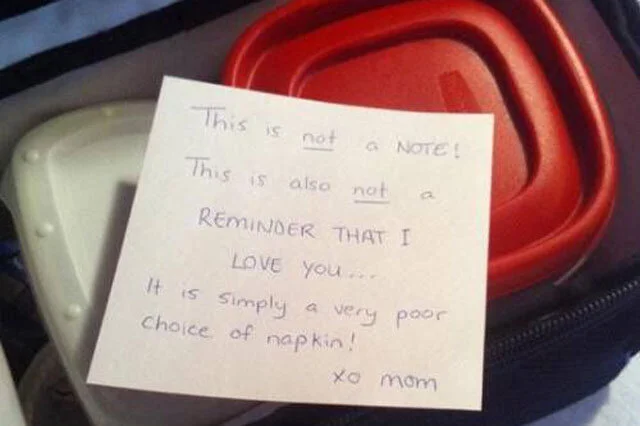 This is not a NOTE!
This is also not a
REMINDER THAT I
LOVE YOU...
It is simply a very poor
choice of napkin!
xo mom